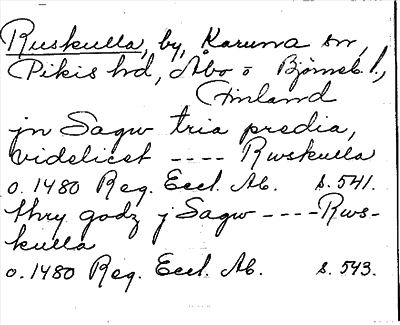 Ruskulla, by, Karuna sn,
Pikis hd, Åbo o Björneb. l.,
Finland
jn Sagw tria predia,
videlicet ---- Rwskulla
o. 1480 Reg. Eccl. Ab. s. 541.
thry godz j Sagw ----Rws-
kulla
o. 1480 Reg. Eccl. Ab. s. 543.